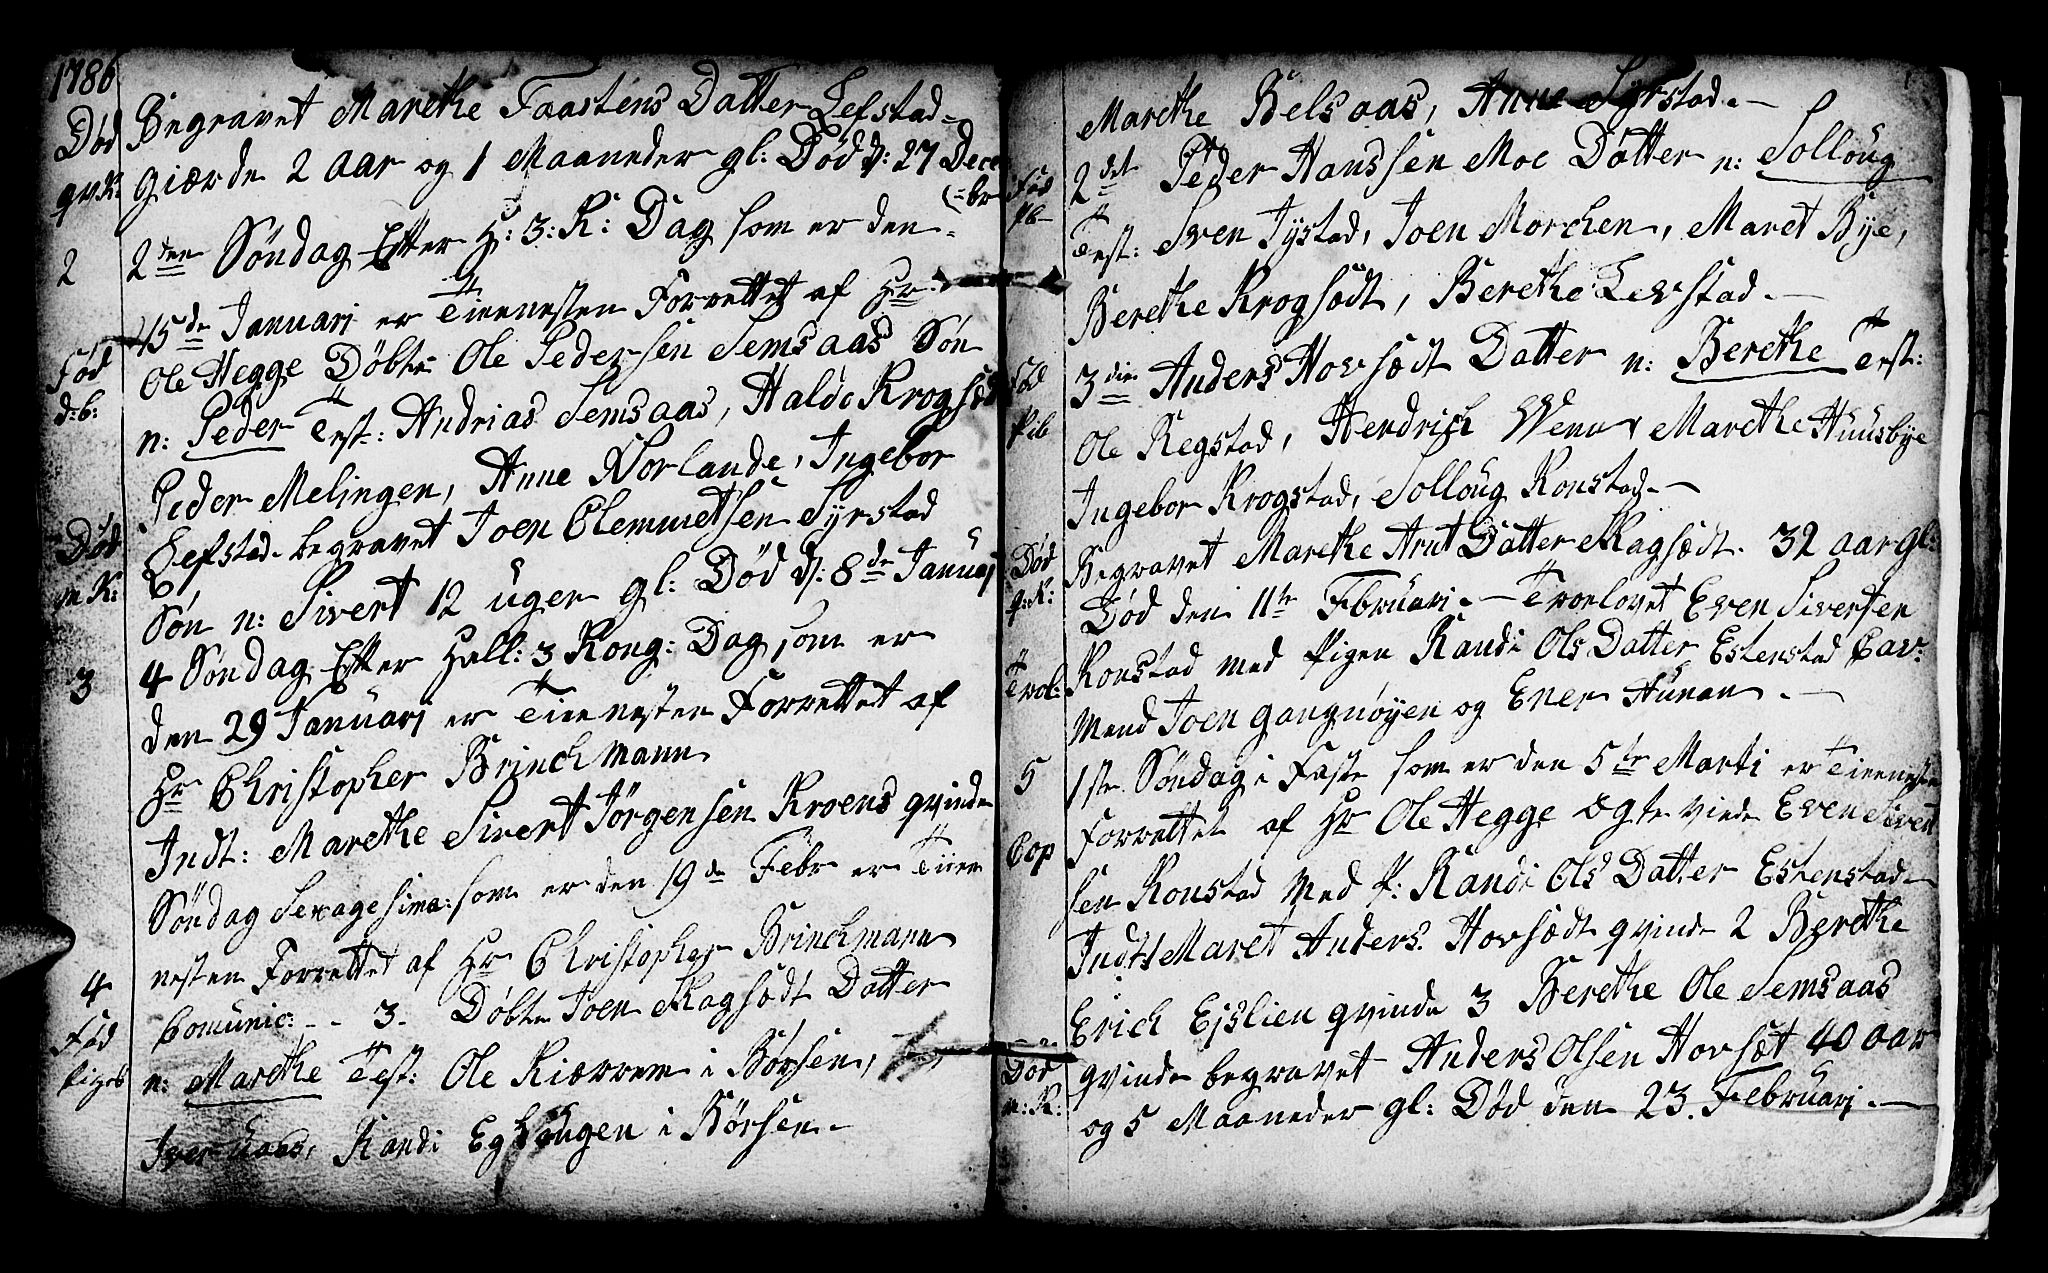 1786
Død Begravet Marethe Faastens Datter Lefstad-
qv:K: Giærde 2 aar og 1 Maaneder gl: Død d: 27 Dece
(=br
2 2den Søndag Etter H: 3: K: Dag som er den
15de Januarj er Tienesten Forrettet af Hr
Ole Hegge Døbte Ole Pedersen Semsaas Søn
Fød
d:b: n: Peder Test: Andrias Semsaas, Haldo Krogsæt
Peder Melingen, Anne Norlande, Ingebor
Lefstad- begravet Joen Clemmetsen Syrstad
Død
m K: Søn n: Sivert 12 uger gl: Død d: 8de Januarj
3 4 Søndag Etter Hell: 3 Kong: Dag som er
den 29 Januarj er Tienesten Forrettet af
Hr Christopher Brinchmann
Indt: Marethe Sivert Jørgensen Kroens qvinde
Søndag Sexagesima: som er den 19de Febr er Tiene
nesten Forrettet af Hr Christopher Brinchmann
4 Comunic: - - 3. Døbte Joen Magsædt Datter
Fød
Pigeb n: Marethe Test: Ole Kiærrem i Børsen,
Iver Kaas, Randi Eghougen i Børsen-
Marethe Belsaas, Anne Syrstad.-
Fød
Pb 2det Peder Hanssen Moe Datter n: Solloug
Test: Sven Jystad, Joen Morchen, Maret Bye,
Berethe Krogsædt, Berethe Levstad.-
Fød
Pib 3die Anders Hovsædt Datter n: Berethe Test:
Ole Regstad, Hendrich Wenn, Marethe Huusbye
Ingebor Krogstad, Solloug Konstad.-
Død
q:K: Begravet Marethe Arnt Datter Magsædt. 32 aar gl:
Død den 11te Februari.- Trorlovet Even Sivertsen
Trol: Konstad med Pigen Randi Ols Datter Estenstad Cav:
Mend Joen Gangnøyen og Ener Hunan.-
5 1ste Søndag i Faste som er den 5te Marti er Tieneste
Forrettet af Hr Ole Hegge Ægte viede Even Sivert
Cop sen Konstad Med P: Randi Ols Datter Estenstad-
Indt: 1 Maret Anders. Hovsædt qvinde 2 Berethe
Erich Ejslien qvinde 3 Berethe Ole Semsaas
Død
m:K: qvinde begravet Anders Olsen Hovsæt 40 aar
og 5 Maaneder gl: Død den 23. Februarj.-